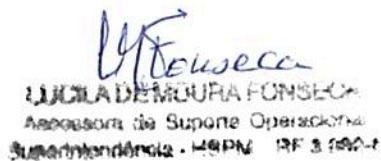 Fonseca
LUCILA DE MOURA FONSECA
Assessora de Suporte Operacional
Superintendência - HSPM RF